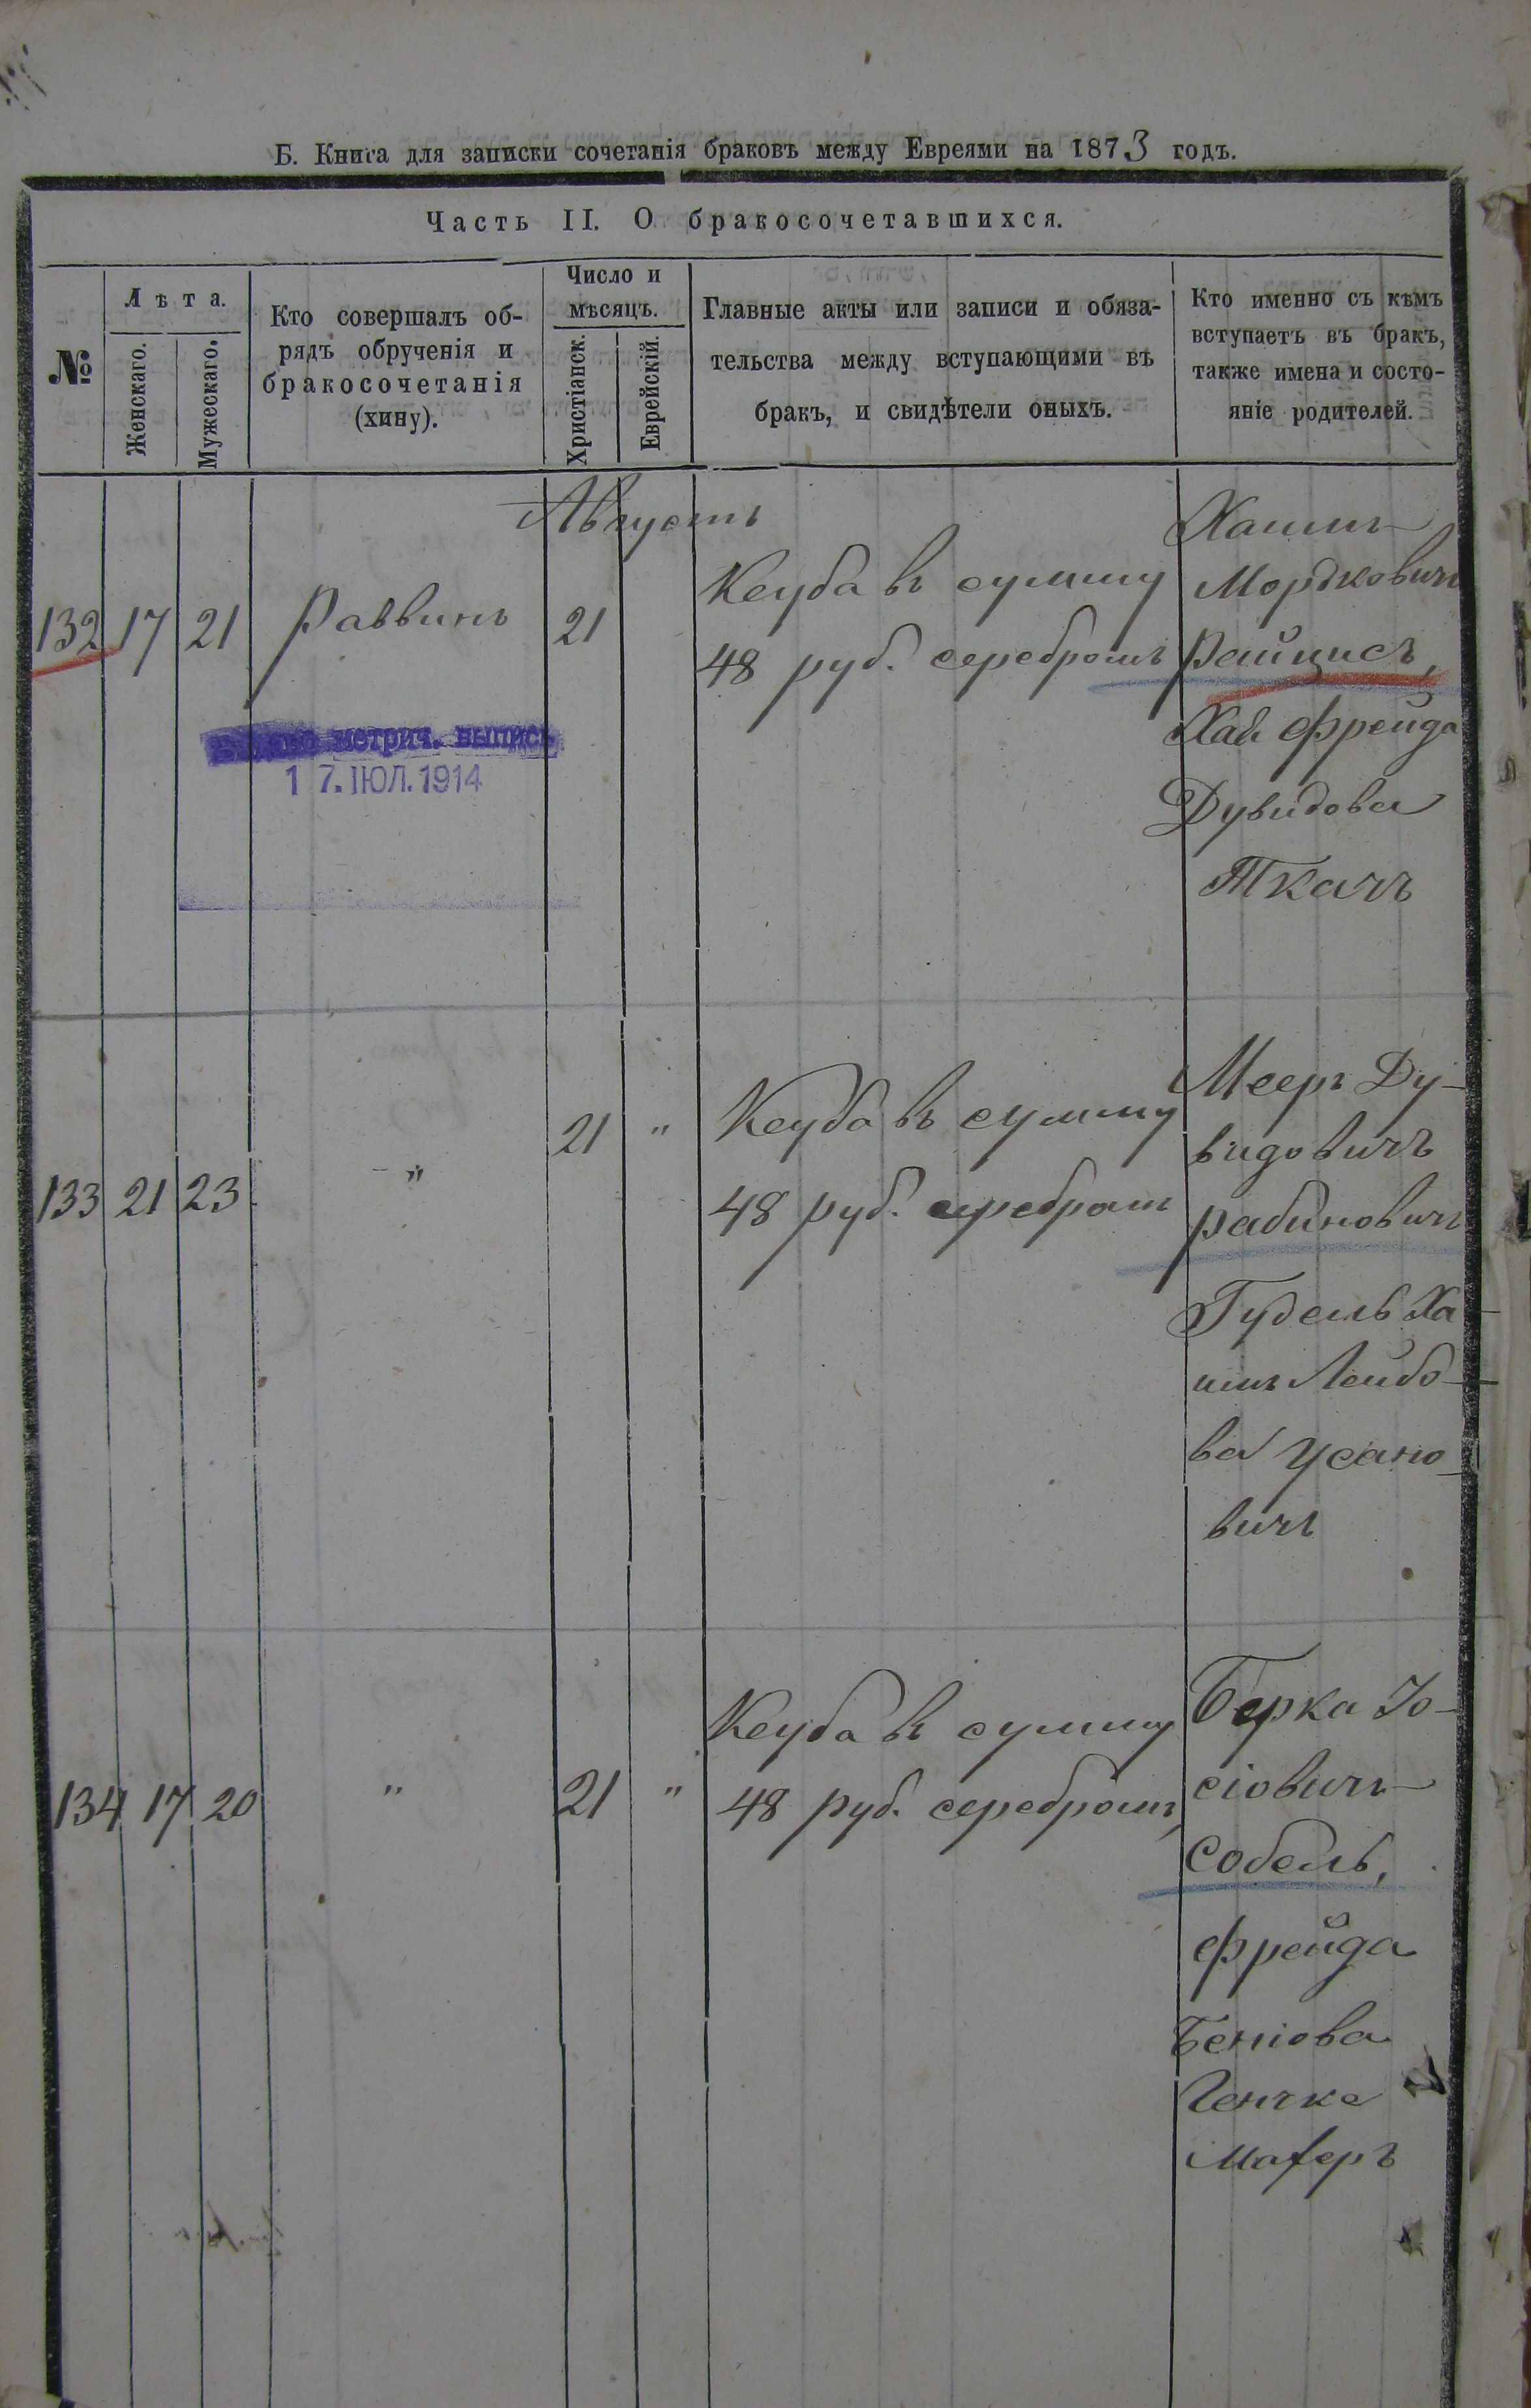 Б. Книга для записки сочетанія браковъ между Евреями на 1873 годъ.
Часть II. О бракосочетавшихся.
№
Лѣта.
Женскаго.
Мужескаго.
Кто совершалъ об-
рядъ обрученія и
бракосочетанія
(хину).
Число и
мѣсяцъ.
Христіанск.
Еврейскій.
Главные акты или записи и обяза-
тельства между вступающими въ
бракъ, и свидѣтели оныхъ.
Кто именно съ кѣмъ
вступаетъ въ бракъ,
также имена и состо-
яніе родителей.
Августъ
132 17 21 Раввинъ 21
Кеуба въ сумму
48 руб. серебромъ
Хаимъ
Мордковичъ
Райцисъ,
Хая Фрейда
Дувидова
Ткачъ
метрич. выпись
17. ІЮЛ. 1914
133 21 23 " 21 "
Кеуба въ сумму
48 руб. серебромъ
Мееръ Ду-
видовичъ
Рабиновичъ
Гудель Ха-
имъ Лейбо-
ва Усано-
вичъ
134 17 20 " 21 "
Кеуба въ сумму
48 руб. серебромъ,
Берка Іо-
сіовичъ
Собель,
Фрейда
Беніова
Маферъ